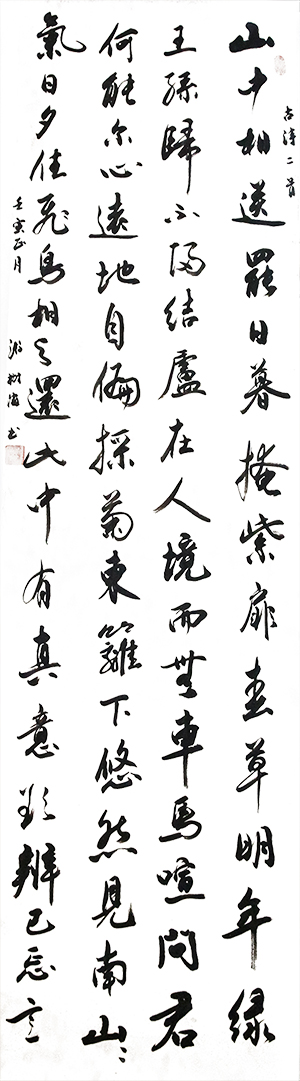 古詩二首
山中相送罷日暮掩柴扉春草明年綠
王孫歸不歸結廬在人境而無車馬喧問君
何能尔心遠地自偏採菊東籬下悠然見南山〻
氣日夕佳飛鳥相与還此中有真意欲辨已忘言
壬寅正月
书